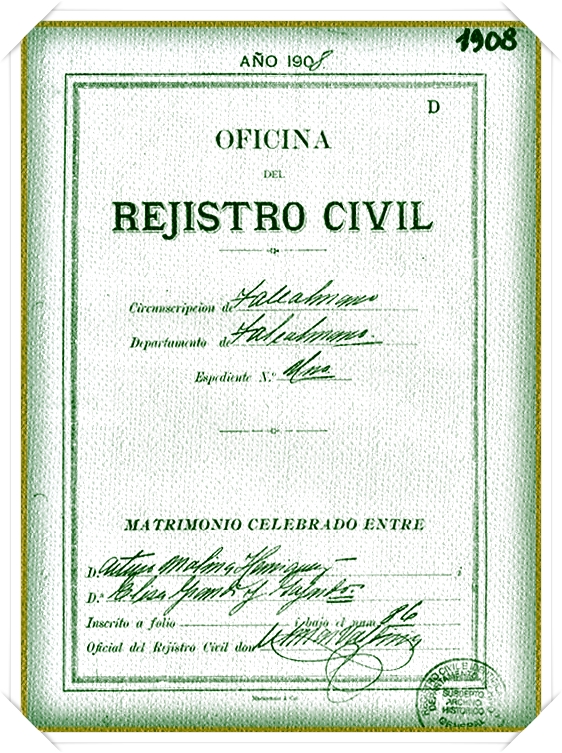 1908
AÑO 1908.
D
OFICINA
DEL
REJISTRO CIVIL
Circunscripcion de Talcahuano
Departamento de Talcahuano.
Espediente N.º Uno.
MATRIMONIO CELEBRADO ENTRE
D. Arturo Molina Henriquez i
D.ª Elisa Grandi y
Inscrito a folio i bajo el num 86
Oficial del Rejistro Civil don
REGISTRO CIVIL E
DEPARTAMENTO
SUBDEPTO
ARCHIVO
HISTORICO
GENERAL